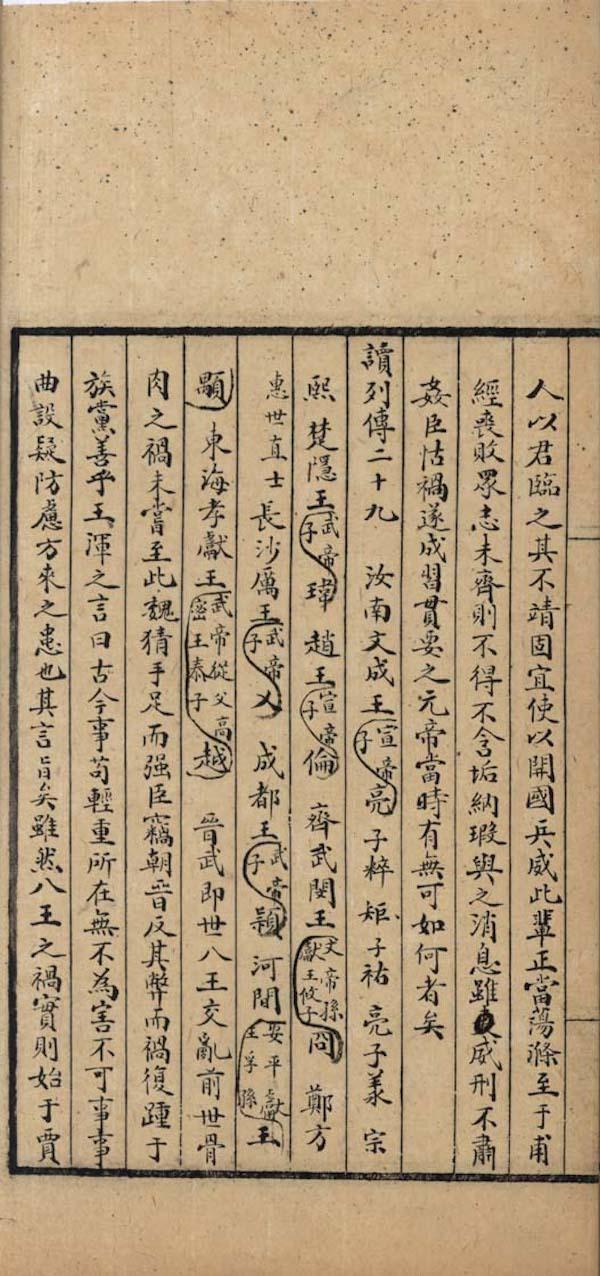 人以君臨之其不靖固宜使以開國兵威此輩正當蕩滌至于甫
經喪敗眾志未齊則不得不含垢納瑕與之消息雖威刑不肅
姦臣怙禍遂成習貫要之元帝當時有無可如何者矣
讀列傳二十九 汝南文成王宣帝子亮 子粹 矩 子祐 亮子羕 宗
熙 楚隱王武帝子瑋 趙王宣帝子倫 齊武閔王文帝孫獻王攸子冏 鄭方
惠世直士 長沙厲王武帝子乂 成都王武帝子穎 河間王安平獻王孚孫
顒 東海孝獻王武帝從父高密王泰子越 晉武即世八王交亂前世骨
肉之禍未嘗至此魏猜手足而强臣竊朝晉反其弊而禍復踵于
族黨善乎王渾之言曰古今事苟輕重所在無不為害不可事事
曲設疑防慮方來之患也其言旨矣雖然八王之禍實則始于賈